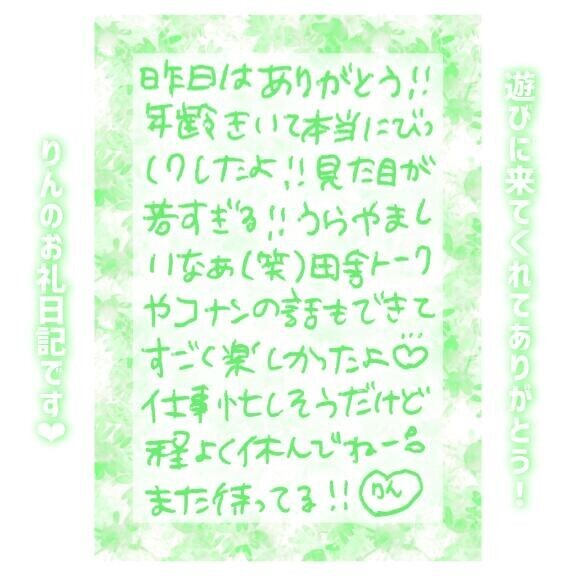 遊びに来てくれてありがとう!
昨日はありがとう!!
年齢きいて本当にびっ
しクしたよ!!見た目が
若すぎる!!うらやまし
いなぁ(笑)田舎トーク
やコナンの話もできて
すごく楽しかったよ♡
仕事忙しそうだけど
程よく休んでねー
また待ってる!!りん
りんのお礼日記です❤